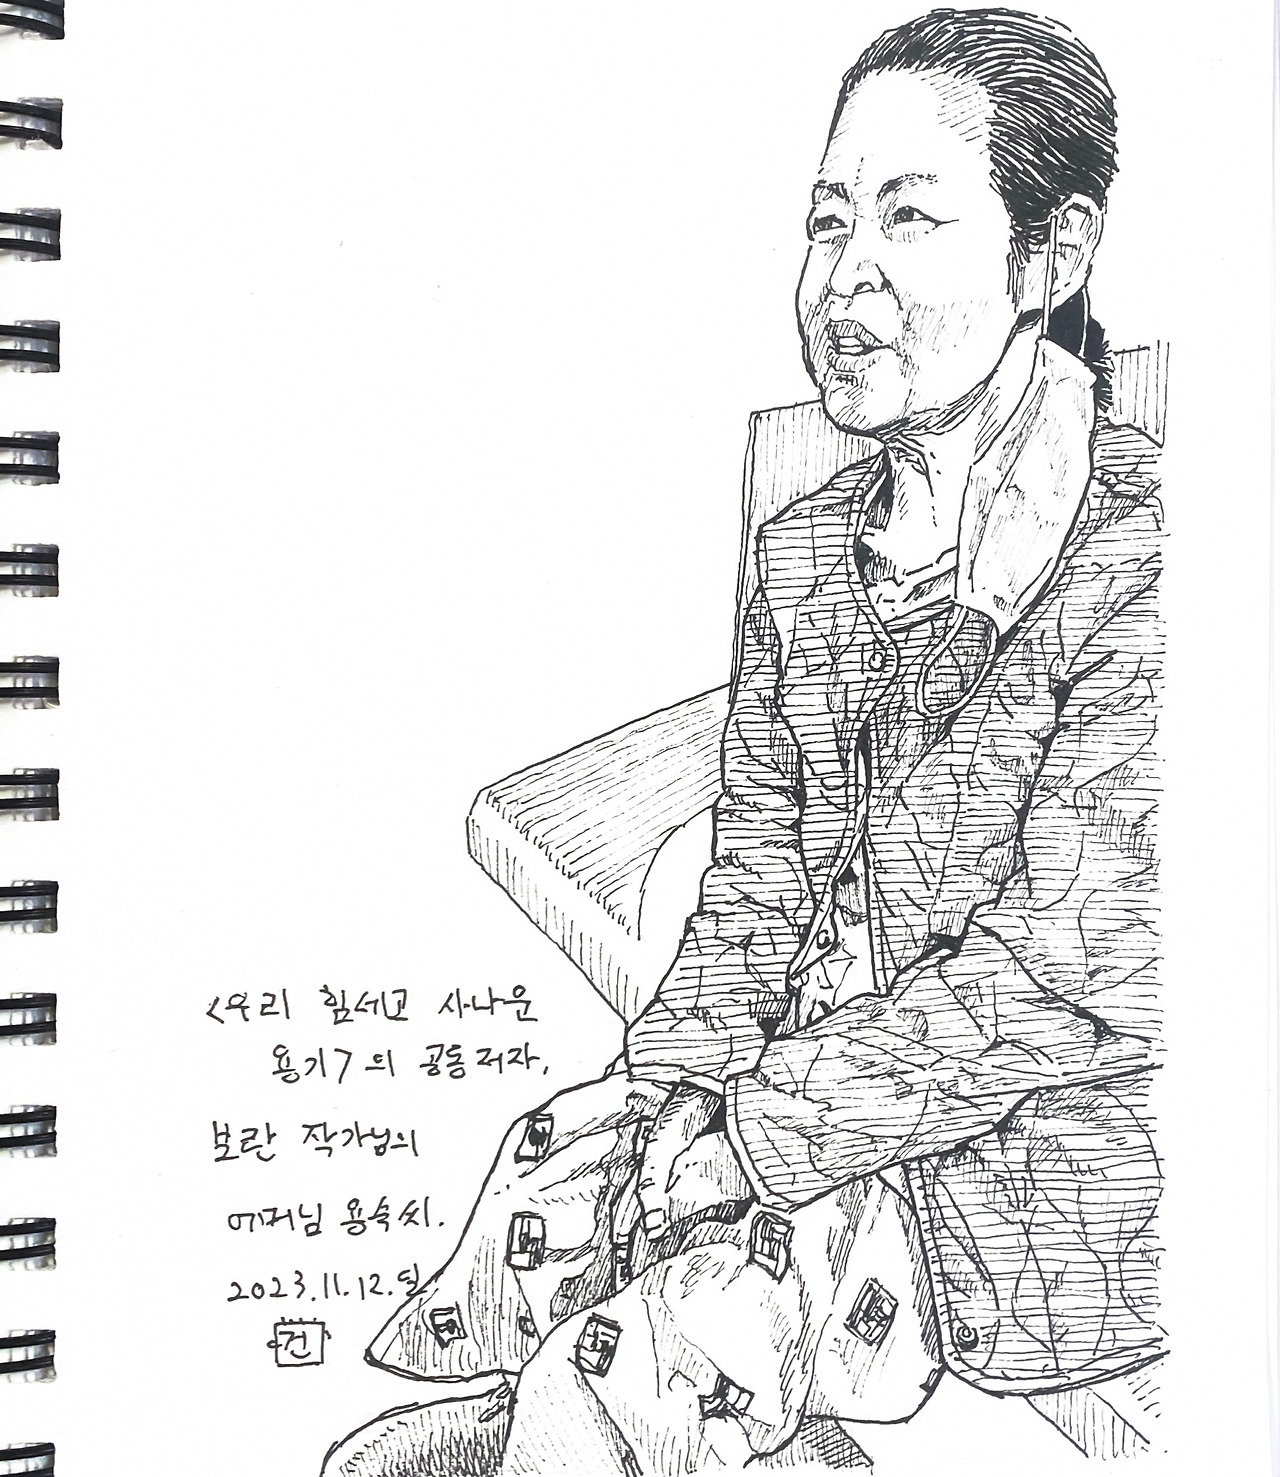 <우리 힘세고 사나운
용기>의 공동저자,
보란 작가님의
어머님 용숙씨.
2023.11.12.일
건